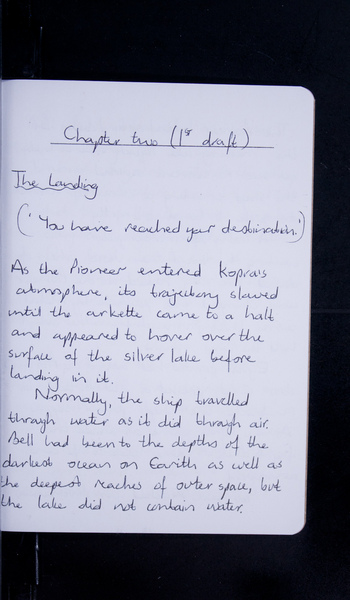 Chapter two (1st draft)
The Landing
('You have reached your destination.')
As the Pioneer entered Kopra's
atmosphere, its trajectory slowed
until the arkette came to a halt
and appeared to hover over the
surface of the silver lake before
landing in it.
Normally, the ship travelled
through water as it did through air.
Bell had been to the depths of the
darkest ocean on Earth as well as
the deepest reaches of outer space, but
the lake did not contain water.